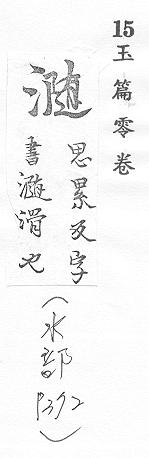 15玉篇零卷
瀡
思累反字
書瀡滑也
(水部P392)